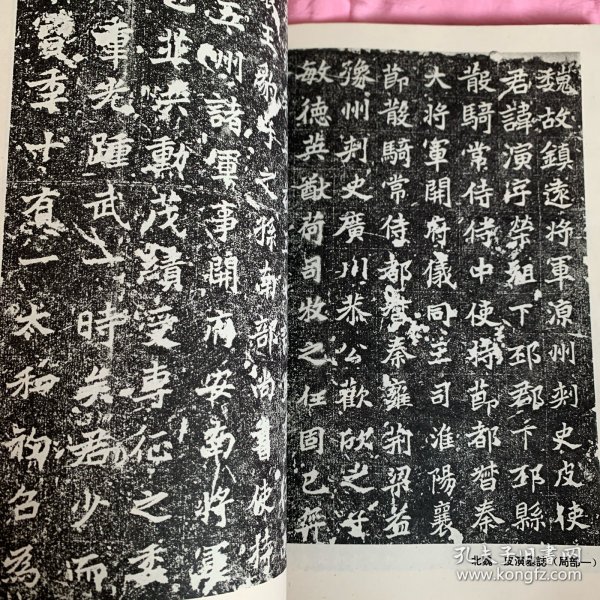 魏故鎮遠将軍涼州刺史皮使
君諱演字榮祖下邳郡下邳縣
散騎常侍侍中使持節都督秦
大将軍開府儀同三司淮陽襄
節散騎常侍都督秦雍荊梁益
豫州刺史廣川恭公歡欣之
敏德英猷荷司牧之任固已
北魏 皮演墓誌（局部一）
之孫南部尚書使持
州諸軍事開府安南将軍
勳茂績受專征之委
重光踵武一時矣君少而
季十有一太和初召為
孔夫子旧书网
www.kongfz.com